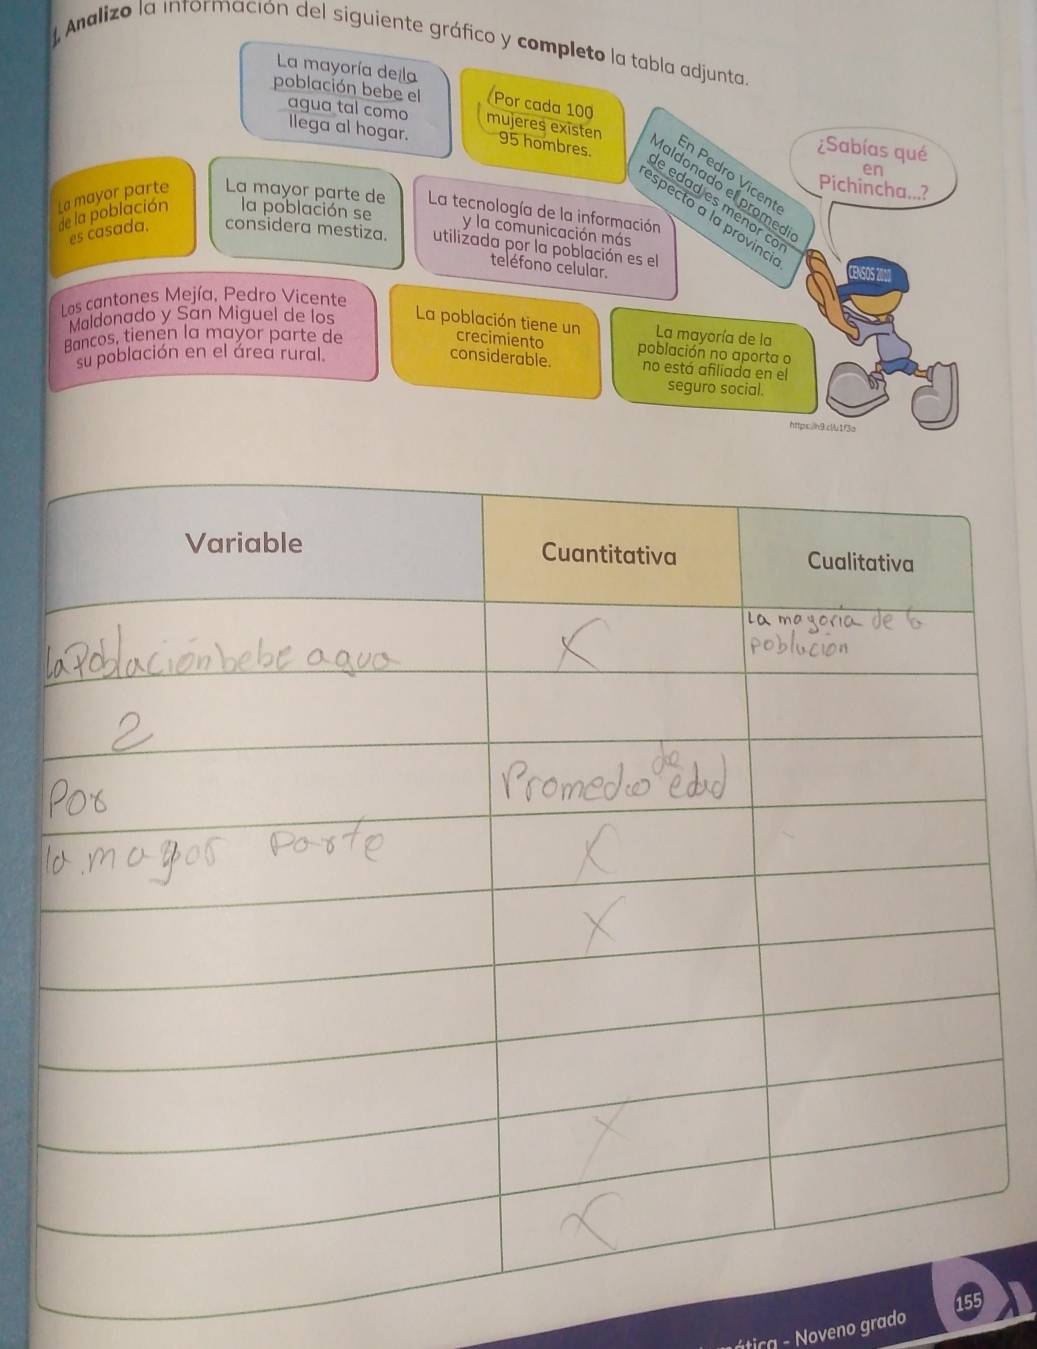 1. Analizo la información del siguiente gráfico y completo la tabla adjunta.
La mayoría de la
población bebe el
agua tal como
llega al hogar.
Por cada 100
mujeres existen
95 hombres.
En Pedro Vicente
Maldonado el promedio
de edad es menor con
respecto a la provincia.
¿Sabías qué
en
Pichincha...?
La mayor parte
de la población
es casada.
La mayor parte de
la población se
considera mestiza.
La tecnología de la información
y la comunicación más
utilizada por la población es el
teléfono celular.
CENSOS 2010
Los cantones Mejía, Pedro Vicente
Maldonado y San Miguel de los
Bancos, tienen la mayor parte de
su población en el área rural.
La población tiene un
crecimiento
considerable.
La mayoría de la
población no aporta o
no está afiliada en el
seguro social.
https://n9.cl/u1f3a
Variable
Cuantitativa
Cualitativa
La Población bebe agua
X
La mayoria de la
poblucion
2
Por
Promedio de edad
la mayor parte
X
X
X
X
ática - Noveno grado
155